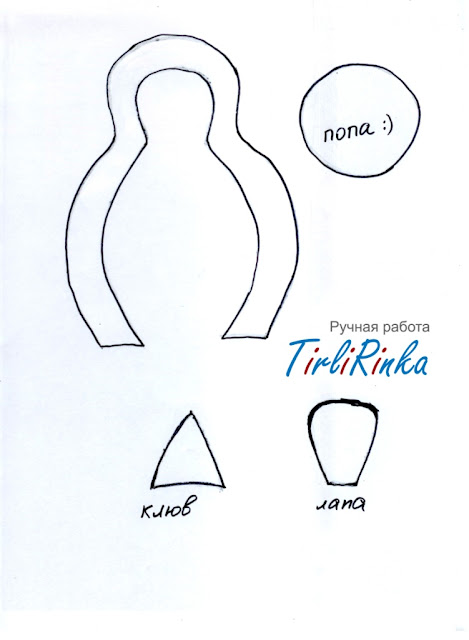 попа :)
Ручная работа
TirliRinka
клюв
лапа